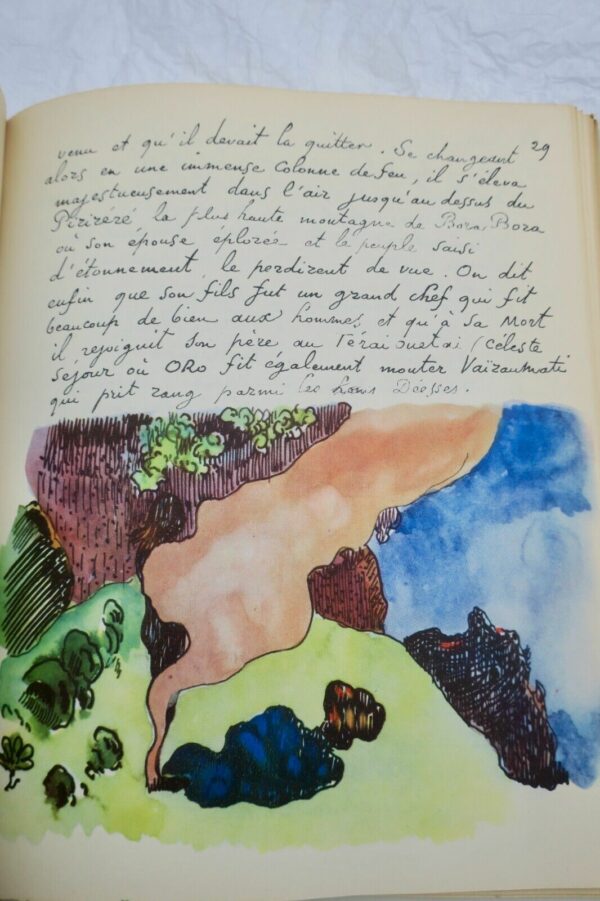 29
venu et qu'il devait la quitter. Se changeant
alors en une immense Colonne de feu, il s'éleva
majestueusement dans l'air jusqu'au dessus du
Piriréré la plus haute montagne de Bora Bora
où son épouse éplorée et le peuple saisi
d'étonnement, le perdirent de vue. On dit
enfin que son fils fut un grand chef qui fit
beaucoup de bien aux hommes, et qu'à sa Mort
il rejoignit son père au (Céleste
Séjour où ORO fit également monter Vaïraumati
qui prit rang parmi les Déesses.